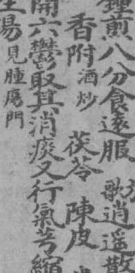 鍾煎八分食遠服　歌逍遥散
香附酒炒　茯苓　陳皮
開六鬱取其消痰又行氣芳縮
湯見腫瘍門